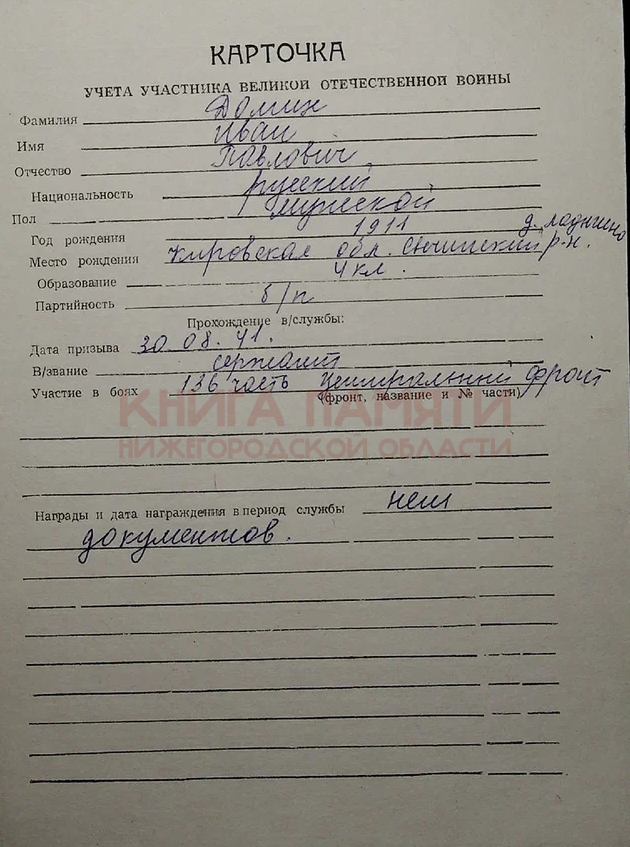 КАРТОЧКА
УЧЕТА УЧАСТНИКА ВЕЛИКОЙ ОТЕЧЕСТВЕННОЙ ВОЙНЫ
Фамилия Домин
Имя Иван
Отчество Павлович
Национальность русский
Пол мужской
Год рождения 1911 д.
Место рождения Кировская обл. р-н.
Образование 4 кл.
Партийность б/п
Прохождение в/службы:
Дата призыва 30 08. 41.
В/звание сержант
Участие в боях 136 часть Центральный фронт
(фронт, название и № части)
КНИГА ПАМЯТИ
НИЖЕГОРОДСКОЙ ОБЛАСТИ
Награды и дата награждения в период службы нет
документов.